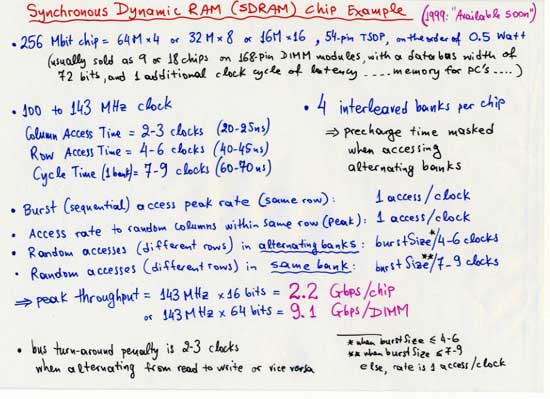 Synchronous Dynamic RAM (SDRAM) Chip Example (1999: "Available soon")
• 256 Mbit chip = 64M×4 or 32M×8 or 16M×16, 54-pin TSOP, on the order of 0.5 Watt
(usually sold as 9 or 18 chips on 168-pin DIMM modules, with a data bus width of
72 bits, and 1 additional clock cycle of latency .... memory for PC's ....)
• 100 to 143 MHz clock
Column Access Time = 2-3 clocks (20-25ns)
Row Access Time = 4-6 clocks (40-45ns)
Cycle Time (1 bank) = 7-9 clocks (60-70ns)
• 4 interleaved banks per chip
⇒ precharge time masked
when accessing
alternating banks
• Burst (sequential) access peak rate (same row): 1 access/clock
• Access rate to random columns within same row (peak): 1 access/clock
• Random accesses (different rows) in alternating banks: burstSize*/4-6 clocks
• Random accesses (different rows) in same bank: burstSize**/7-9 clocks
⇒ peak throughput = 143 MHz × 16 bits = 2.2 Gbps/chip
or 143 MHz × 64 bits = 9.1 Gbps/DIMM
• bus turn-around penalty is 2-3 clocks
when alternating from read to write or vice versa
* when burstSize ≤ 4-6
** when burstSize ≤ 7-9
else, rate is 1 access/clock